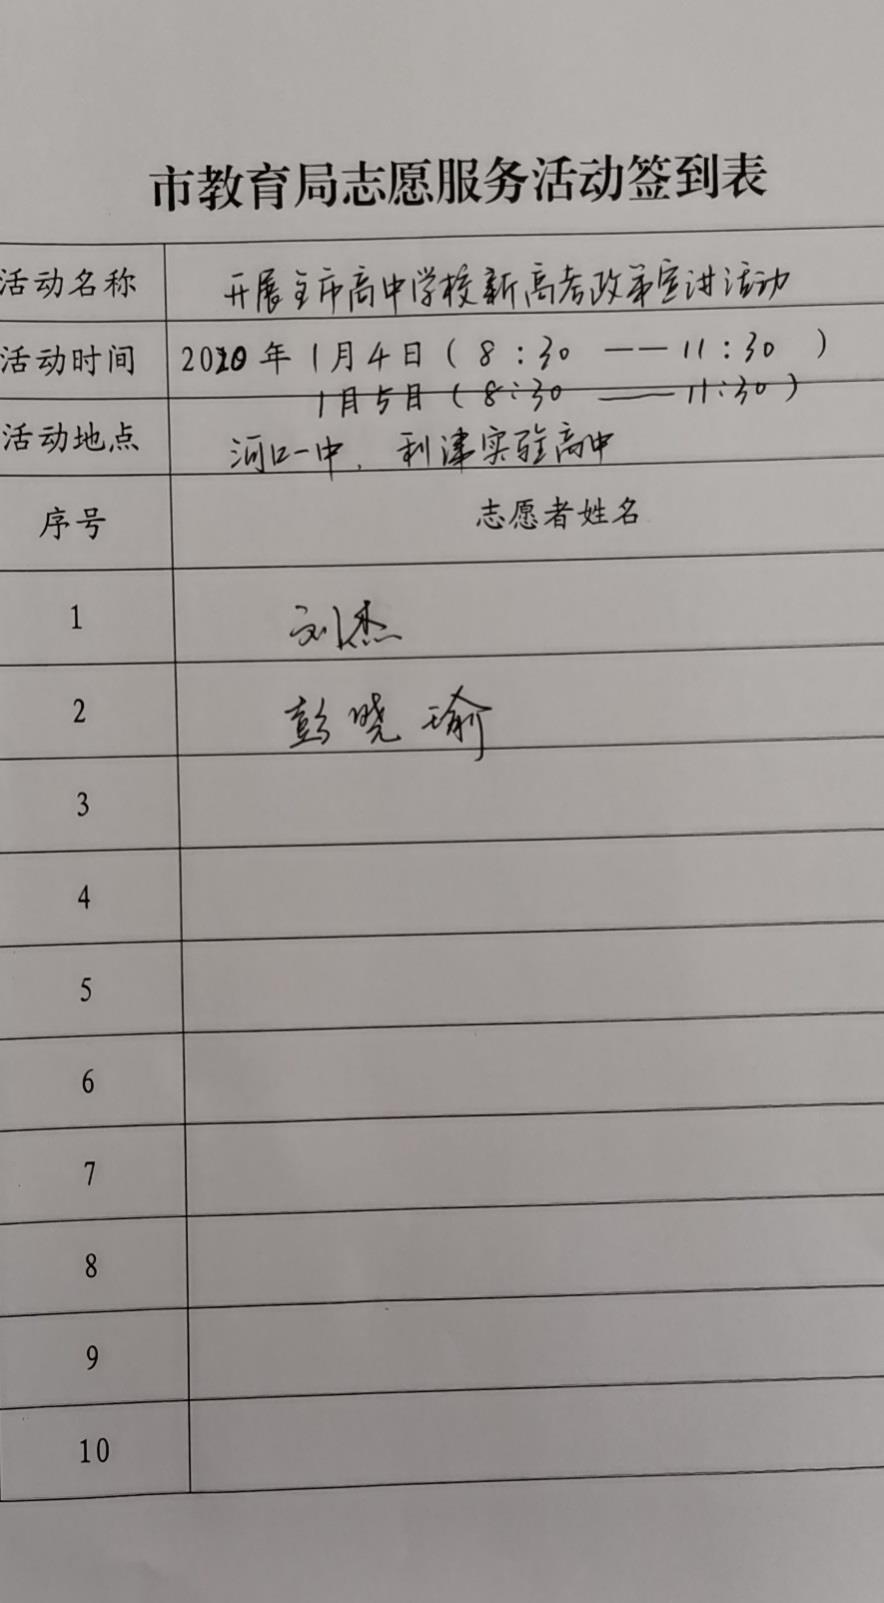 市教育局志愿服务活动签到表
活动名称 开展全市高中学校新高考政策宣讲活动
活动时间 2020年1月4日(8:30——11:30)
1月5日(8:30——11:30)
活动地点 河口一中、利津实验高中
序号 志愿者姓名
1 刘杰
2 彭晓瑜
3
4
5
6
7
8
9
10